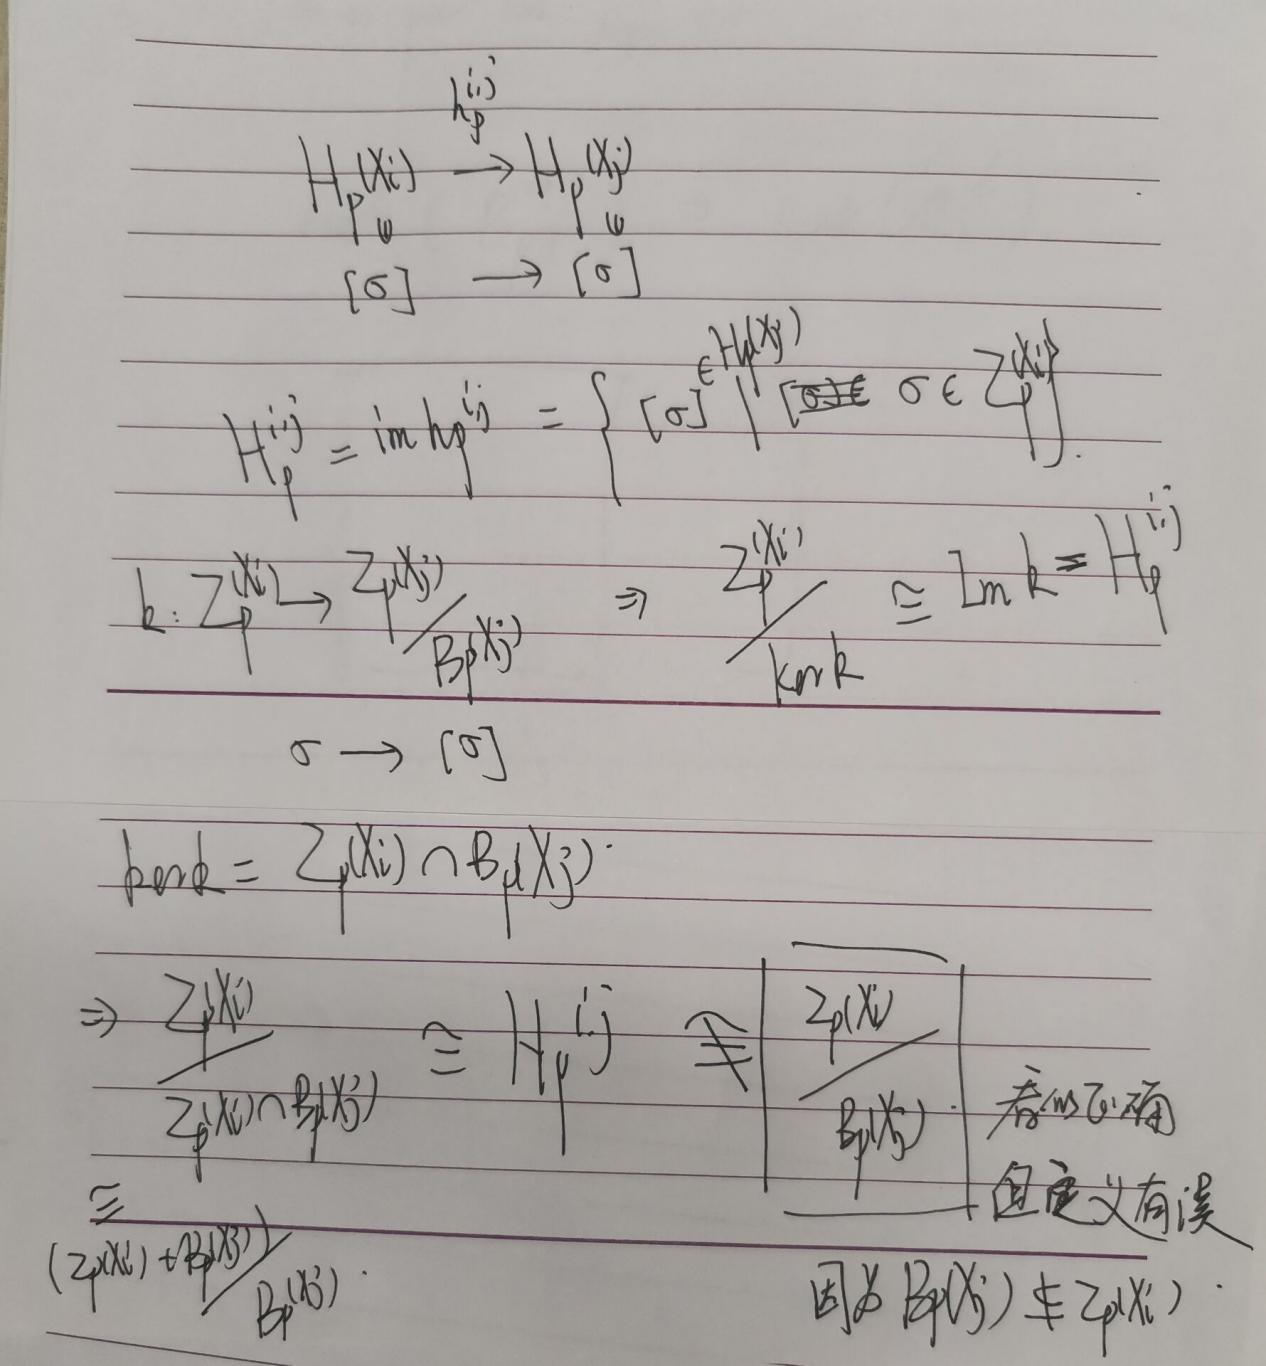 h_p^{i,j}
H_p(X_i) → H_p(X_j)
∪ ∪
[σ] → [σ]
H_p^{i,j} = im h_p^{i,j} = { [σ] ∈ H_p(X_j) | σ ∈ Z_p(X_i) }.
k: Z_p(X_i) → Z_p(X_j) / B_p(X_j) ⇒ Z_p(X_i) / ker k ≅ Im k = H_p^{i,j}
σ → [σ]
ker k = Z_p(X_i) ∩ B_p(X_j).
⇒ Z_p(X_i) / Z_p(X_i) ∩ B_p(X_j) ≅ H_p^{i,j} ≇ Z_p(X_i) / B_p(X_j).
看似正确
但定义有误
≅ (Z_p(X_i) + B_p(X_j)) / B_p(X_j).
因为 B_p(X_j) ⊄ Z_p(X_i).